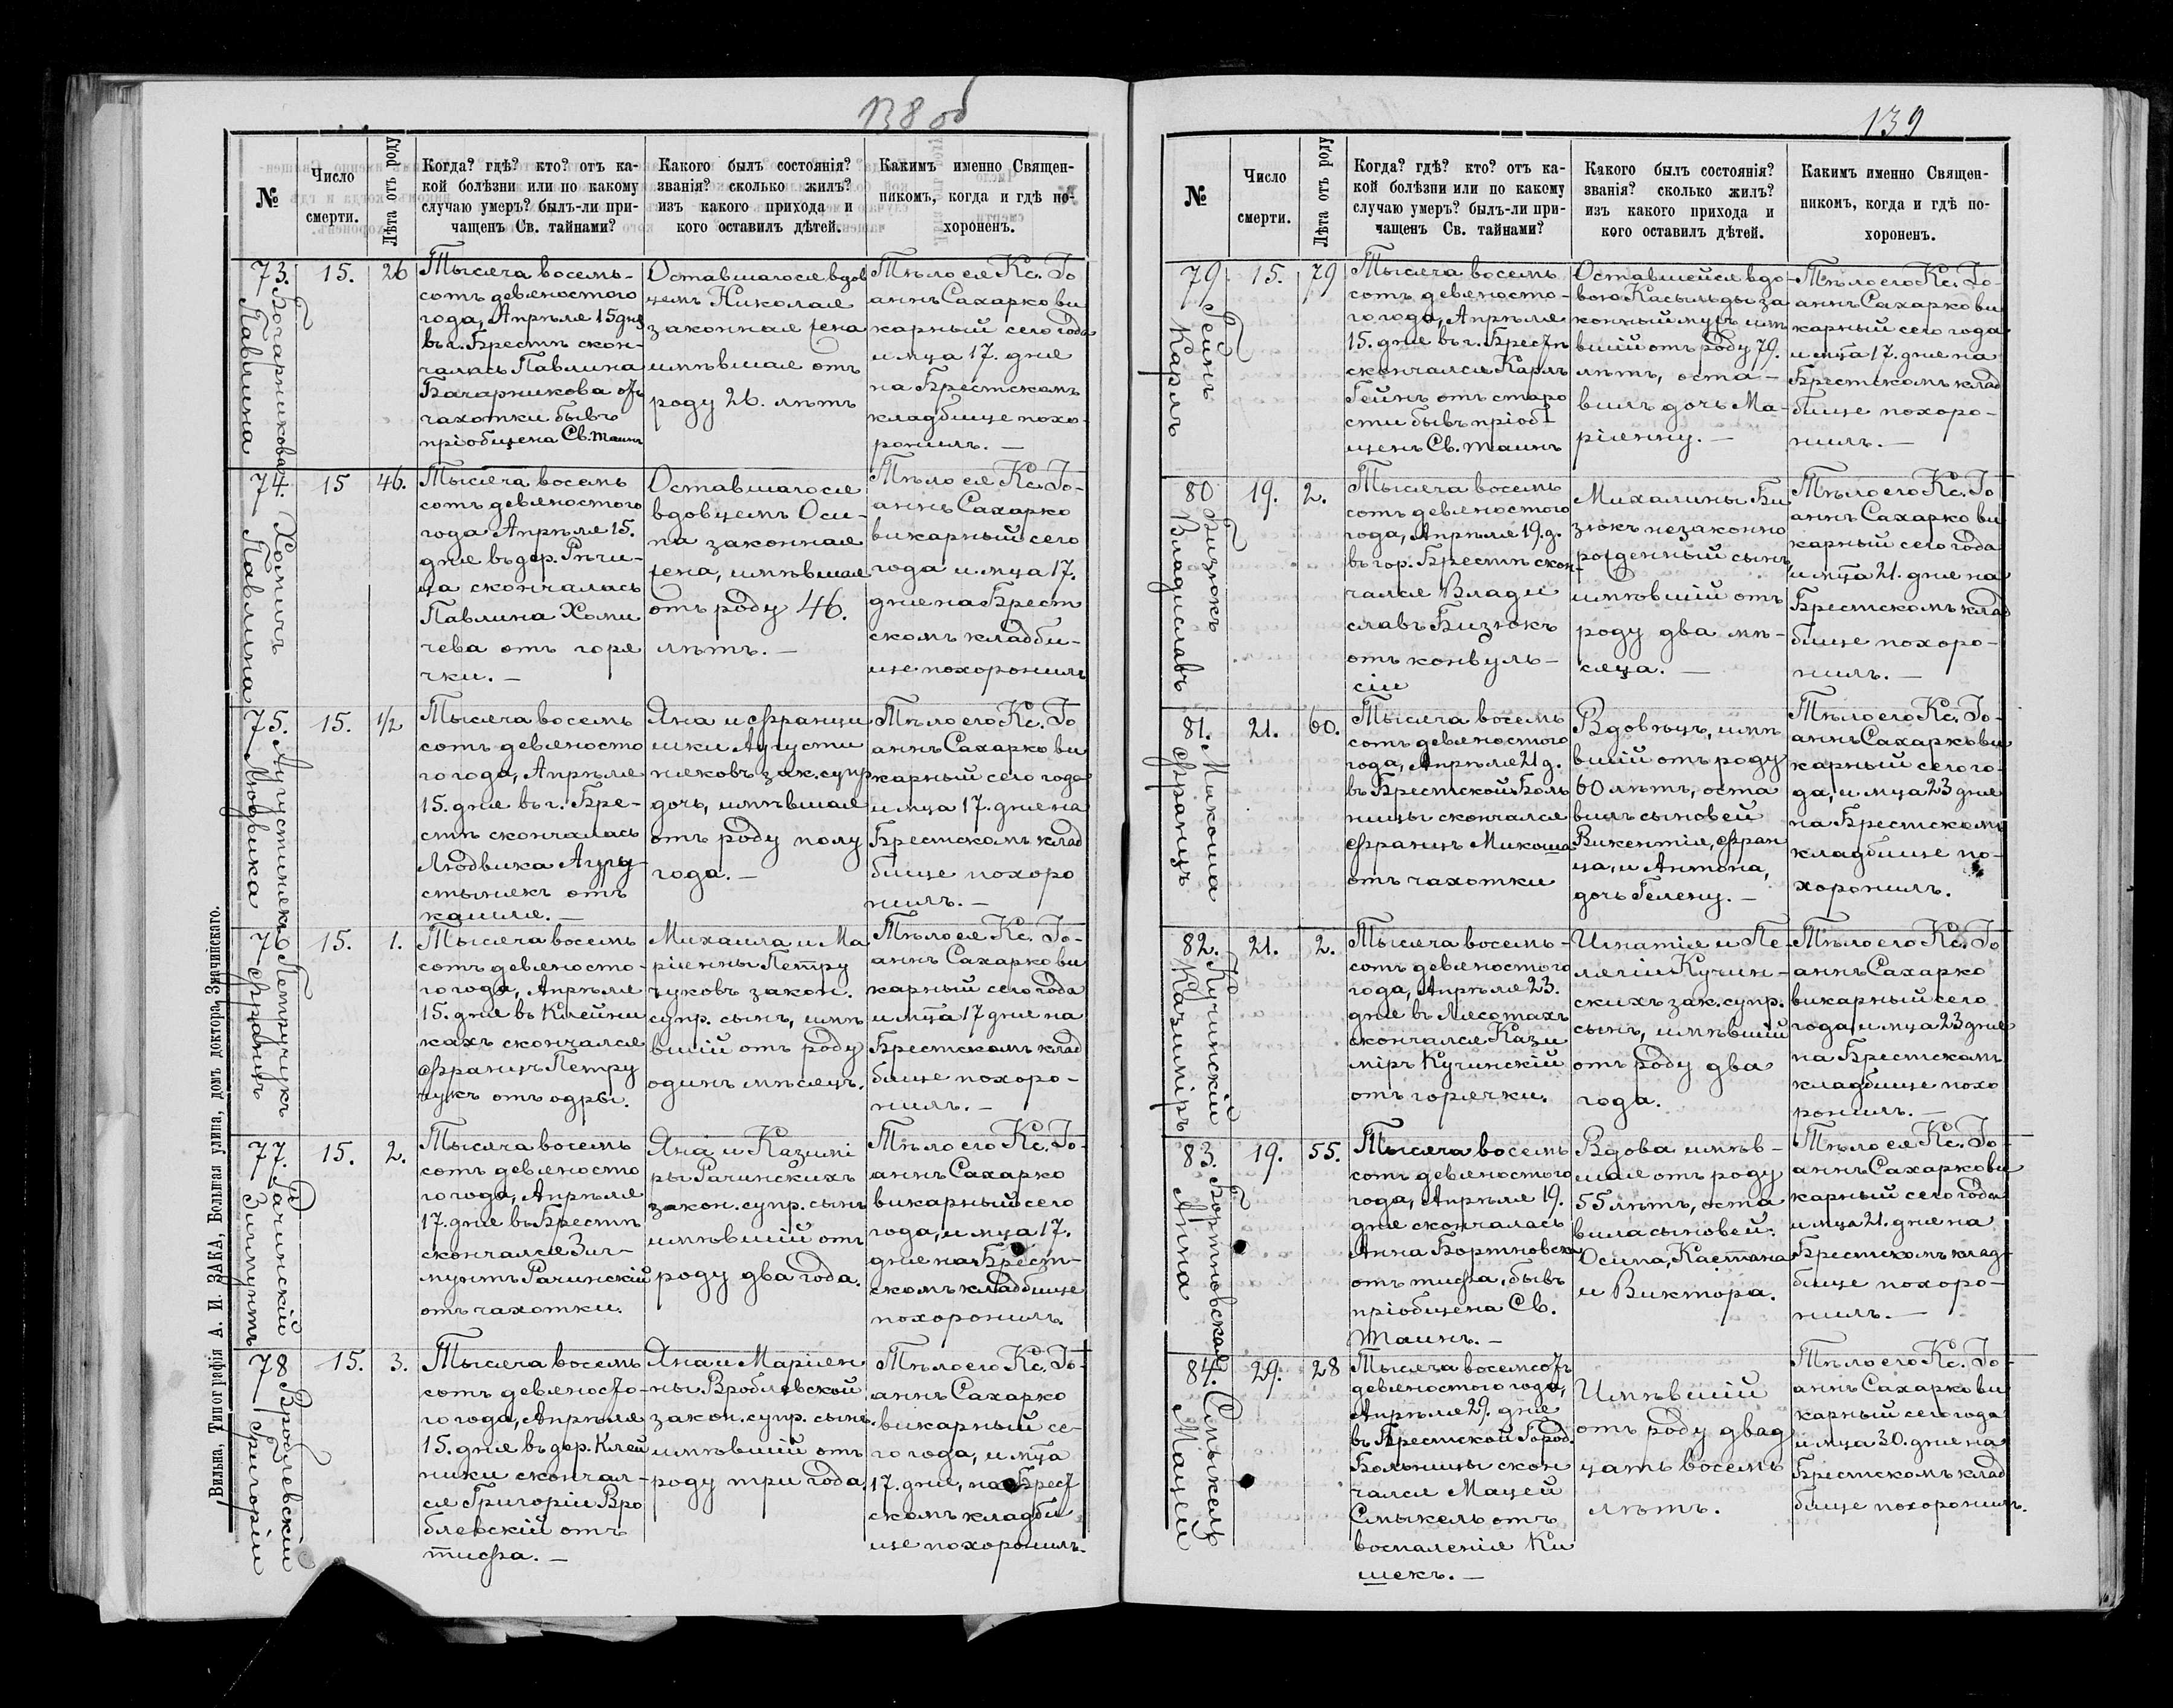 138 об
№
Число
смерти.
Лѣта отъ роду
Когда? гдѣ? кто? отъ ка-
кой болѣзни или по какому
случаю умеръ? былъ-ли при-
чащенъ Св. тайнами?
Какого былъ состоянія?
званія? сколько жилъ?
изъ какого прихода и
кого оставилъ дѣтей.
Какимъ именно Священ-
никомъ, когда и гдѣ по-
хороненъ.
73.
Бочарникова
Павлина
15.
26
Тысяча восемь-
сотъ девяностого
года, Апрѣля 15 дня
въ г. Брестѣ скон-
чалась Павлина
Бачарникова отъ
чахотки бывъ
пріобщена Св. таинъ
Оставшагося вдов
цемъ Николая
законная жена
имѣвшая отъ
роду 26. лѣтъ
Тѣло ея Кс. Іо
аннъ Сахарко ви
карный сего года
и мца 17. дня
на Брестскомъ
кладбище похо-
ронилъ. —
74.
Хомичъ
Павлина
15
46.
Тысяча восемь
сотъ девяностого
года Апрѣля 15.
дня въ дер. Рѣчи-
ца скончалась
Павлина Хоми
чева отъ горя
чки. —
Оставшагося
вдовцемъ Оси-
па законная
жена, имѣвшая
отъ роду 46.
лѣтъ. —
Тѣло ея Кс. Іо-
аннъ Сахарко
викарный сего
года и мца 17.
дня на Брест
скомъ кладби-
ще похоронилъ
75.
Аугустинякъ
Людвика
15.
1/2
Тысяча восемь
сотъ девяносто
го года, Апрѣля
15. дня въ г. Бре-
стѣ скончалась
Людвика Аугу-
стынякъ отъ
кашля. —
Яна и Францы
шки Аугусти
няковъ зак. супр
дочь, имѣвшая
отъ роду полу
года. —
Тѣло его Кс. Іо
аннъ Сахарко ви
карный сего года
и мца 17. дня на
Брестскомъ клад
бище похоро
нилъ. —
76
Петручукъ
Францъ
15.
1.
Тысяча восемь
сотъ девяносто-
го года, Апрѣля
15. дня въ Клейни
кахъ скончался
Францъ Петру
чукъ отъ одры.
Михаила и Ма
ріянны Петру
чуковъ закон.
супр. сынъ, имѣ
вшій отъ роду
одинъ мѣсяцъ.
Тѣло ея Кс. Іо-
аннъ Сахарко ви
карный сего года
и мца 17 дня на
Брестскомъ клад
бище похоро-
нилъ. —
77.
Рачинскій
Зигмунтъ
15.
2.
Тысяча восемь
сотъ девяносто
го года, Апрѣля
17. дня въ Брестѣ
скончался Зиг-
мунтъ Рачинскій
отъ чахотки.
Яна и Казимі
ры Рачинскихъ
закон. супр. сынъ
имѣвшій отъ
роду два года.
Тѣло его Кс. Іо-
аннъ Сахарко
викарный сего
года, и мца 17.
дня на Брест-
скомъ кладбище
похоронилъ
78
Вроблевскій
Григорій
15.
3.
Тысяча восемь
сотъ девяносто-
го года, Апрѣля
15. дня въ дер. Клей
ники скончал-
ся Григорій Вро
блевскій отъ
тифа. —
Яна и Маріян
ны Вроблевской
закон. супр. сынъ.
имѣвшій отъ
роду три года.
Тѣло его Кс. Іо-
аннъ Сахарко
викарный се-
го года, и мца
17. дня, на Брест
скомъ кладби
ще похоронилъ.
Вильна, Типографія А. И. ЗАКА, Большая улица, домъ доктора Значинскаго.
139
№
Число
смерти.
Лѣта отъ роду
Когда? гдѣ? кто? отъ ка-
кой болѣзни или по какому
случаю умеръ? былъ-ли при-
чащенъ Св. тайнами?
Какого былъ состоянія?
званія? сколько жилъ?
изъ какого прихода и
кого оставилъ дѣтей.
Какимъ именно Священ-
никомъ, когда и гдѣ по-
хороненъ.
79
Гейнъ
Карлъ
15.
79
Тысяча восемь
сотъ девяносто-
го года, Апрѣля
15. дня въ г. Брестѣ
скончался Карлъ
Гейнъ отъ старо
сти бывъ пріоб-
щенъ Св. таинъ
Оставшейся вдо-
вою Касыльды за
конный мужъ имѣ
вшій отъ роду 79.
лѣтъ, оста-
вилъ дочь Ма-
ріянну. —
Тѣло его Кс. Іо-
аннъ Сахарко ви
карный сего года
и мца 17. дня на
Брестскомъ клад
бище похоро-
нилъ. —
80
Бизюкъ
Владиславъ
19.
2.
Тысяча восемь
сотъ девяностого
года, Апрѣля 19. д.
въ гор. Брестѣ скон-
чался Влади
славъ Бизюкъ
отъ конвуль-
сіи
Михалины Би
зюкъ незаконно
рожденный сынъ,
имѣвшій отъ
роду два мѣ-
сяца. —
Тѣло его Кс. Іо
аннъ Сахарко ви
карный сего года
и мца 21. дня на
Брестскомъ клад
бище похоро-
нилъ. —
81.
Микоша
Францъ
21.
60.
Тысяча восемь
сотъ девяностого
года, Апрѣля 21 д.
въ Брестской Боль
ницы скончался
Францъ Микоша
отъ чахотки
Вдовецъ, имѣ
вшій отъ роду
60 лѣтъ, оста
вилъ сыновей
Викентія, Фран
ца, и Антона,
дочь Гелену. —
Тѣло его Кс. Іо-
аннъ Сахарко ви
карный сего го-
да, и мца 23 дня
на Брестскомъ
кладбище по-
хоронилъ.
82.
Кучинскій
Казиміръ
21.
2.
Тысяча восемь-
сотъ девяностого
года, Апрѣля 23.
дня въ Лясотахъ
скончался Кази
міръ Кучинскій
отъ горячки.
Игнатія и Пе-
лягіи Кучин-
скихъ зак. супр.
сынъ, имѣвшій
отъ роду два
года.
Тѣло его Кс. Іо
аннъ Сахарко
викарный сего
года, и мца 23 дня
на Брестскомъ
кладбище похо
ронилъ. —
83.
Бортновская
Анна
19.
55.
Тысяча восемь
сотъ девяностого
года, Апрѣля 19.
дня скончалась
Анна Бортновска
отъ тифа, бывъ
пріобщена Св.
таинъ. —
Вдова имѣв-
шая отъ роду
55 лѣтъ, оста
вила сыновей:
Осипа, Каетана
и Виктора.
Тѣло ея Кс. Іо-
аннъ Сахарко ви
карный сего года
и мца 21. дня на
Брестскомъ клад-
бище похоро-
нилъ. —
84.
Смыкель
Мацей
29.
28
Тысяча восемсотъ
девяностого года,
Апрѣля 29. дня
въ Брестской Город.
Больницы скон
чался Мацей
Смыкель отъ
воспаленія Ки
шекъ. —
Имѣвшій
отъ роду двад
цать восемь
лѣтъ.
Тѣло его Кс. Іо-
аннъ Сахарко ви
карный сего года
и мца 30. дня на
Брестскомъ клад
бище похоронилъ.